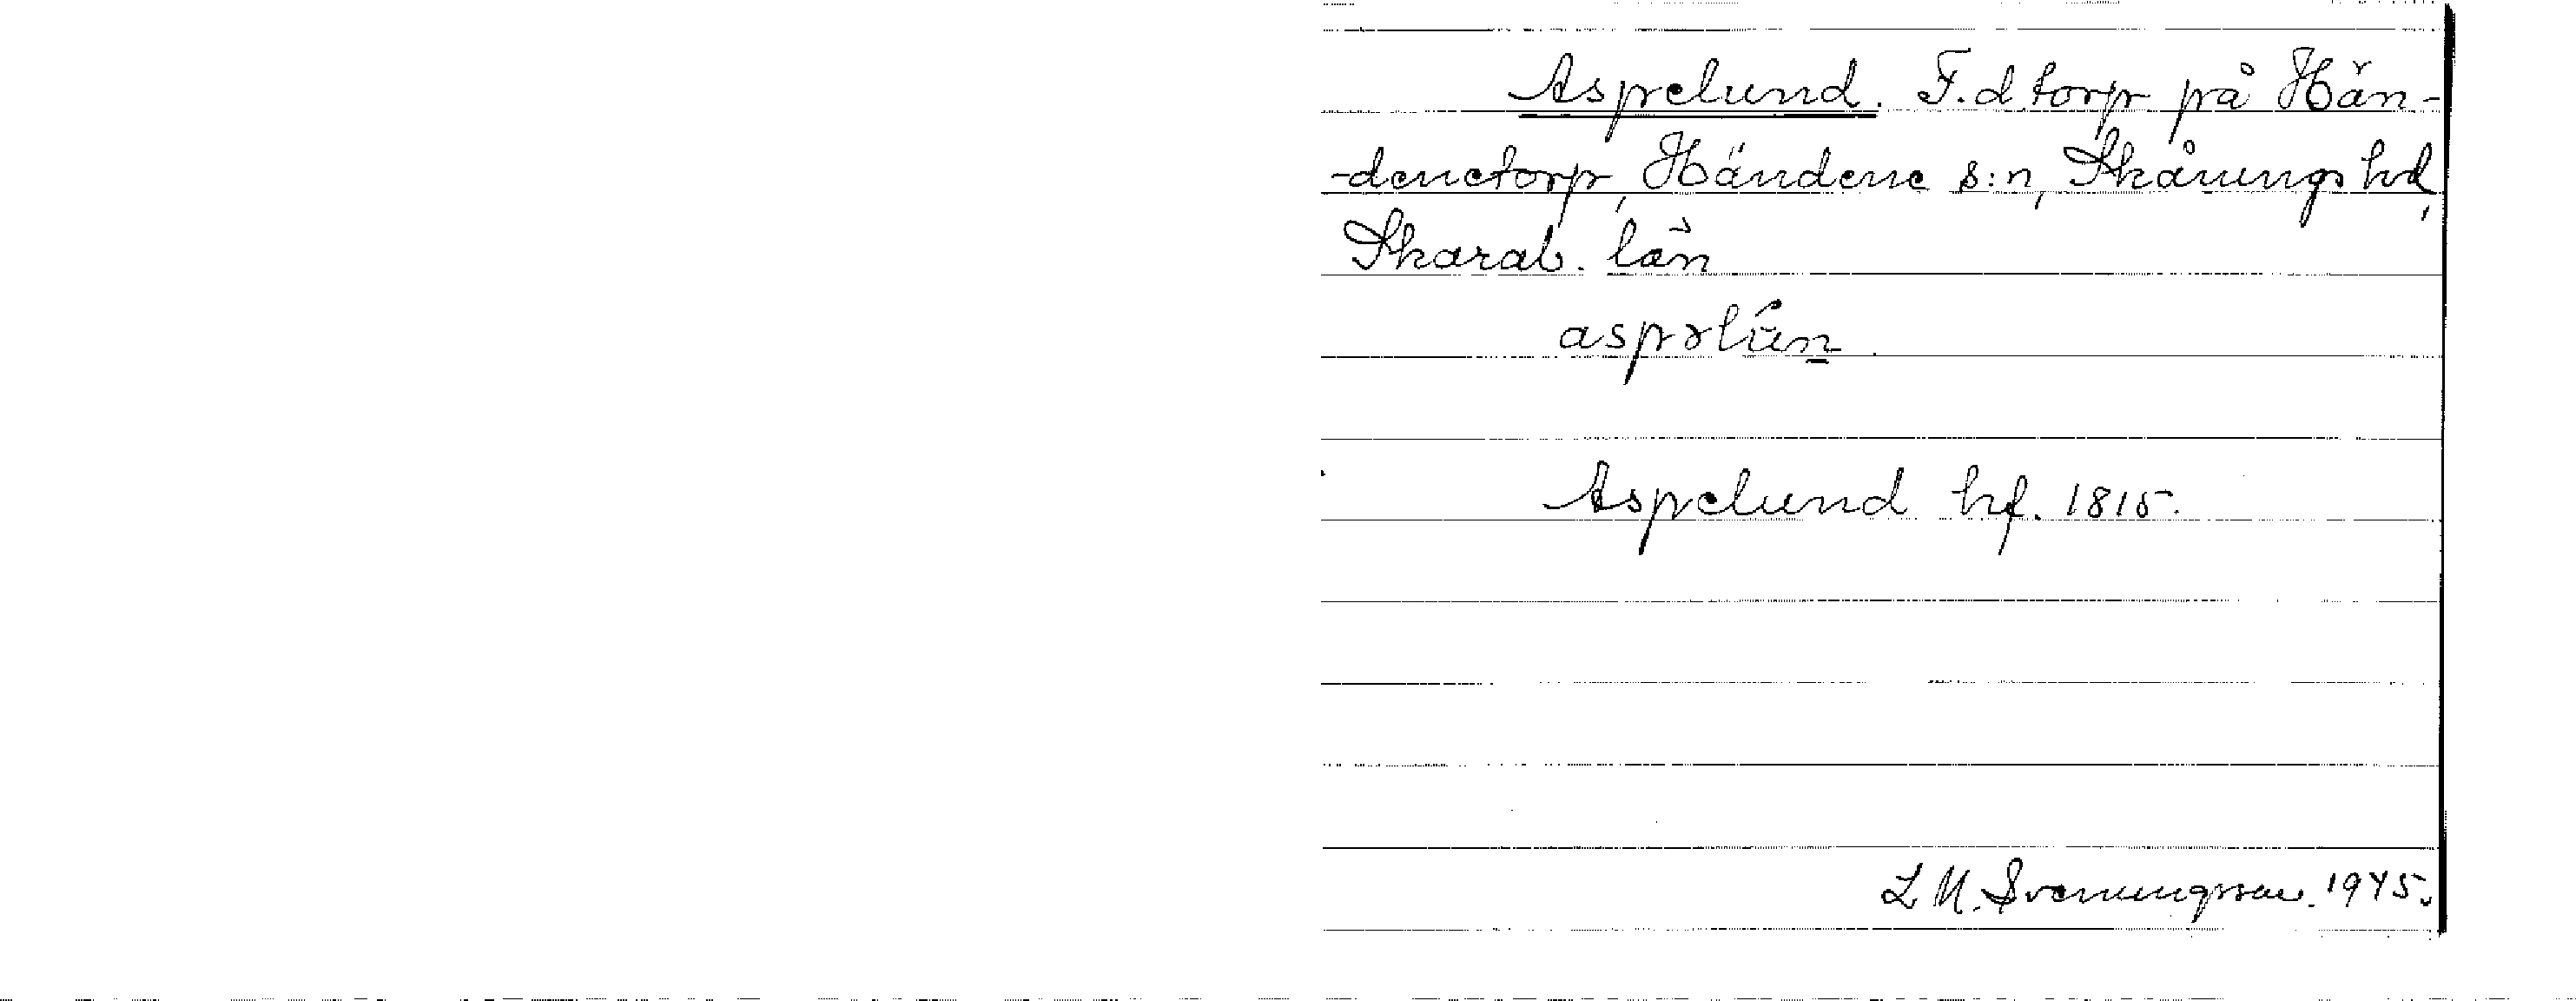 Aspelund. F.d torp på Hän-
-denetorp, Händene s:n, Skånings hd,
Skarab. län
Aspelund hf. 1815.
L M. Svenungsson. 1945.